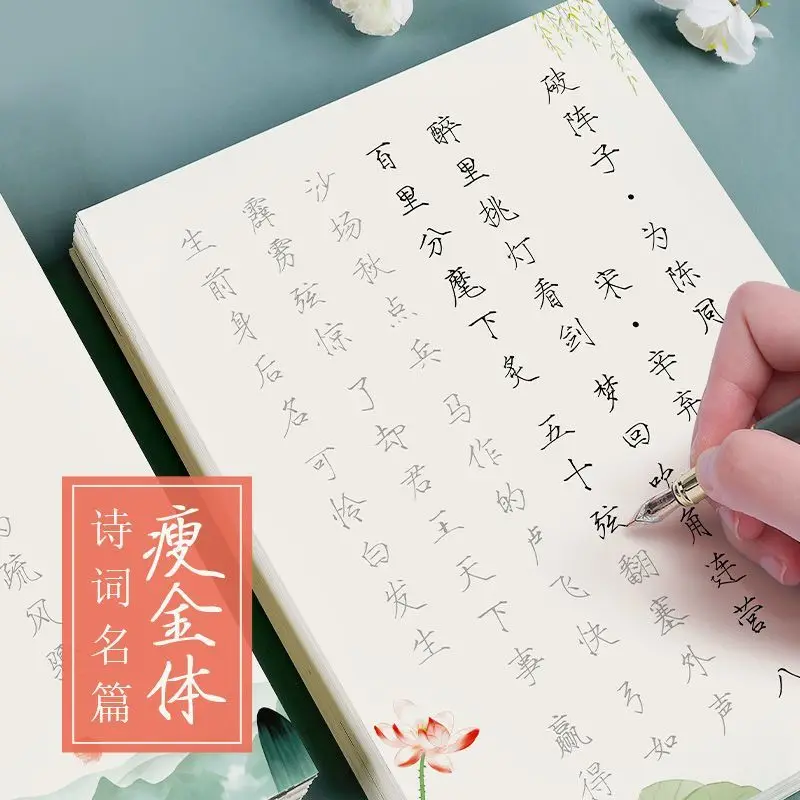 破阵子·为陈同
宋·辛弃
醉里挑灯看剑 梦回吹角连营 八
百里分麾下炙 五十弦翻塞外声
沙场秋点兵 马作的卢飞快 弓如
霹雳弦惊 了却君王天下事 赢得
生前身后名 可怜白发生
瘦金体
诗词名篇
疏风